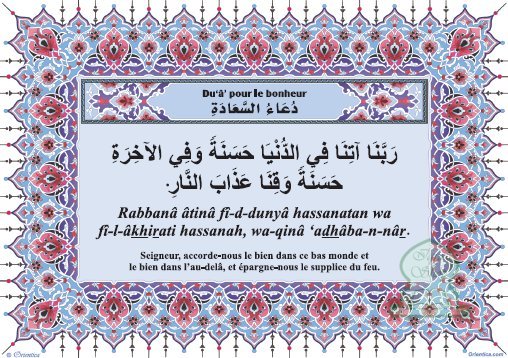 Du‘â’ pour le bonheur
دُعَاءُ السَّعَادَةِ
رَبَّنَا آتِنَا فِي الدُّنْيَا حَسَنَةً وَفِي الآخِرَةِ
حَسَنَةً وَقِنَا عَذَابَ النَّارِ.
Rabbanâ âtinâ fî-d-dunyâ hassanatan wa
fî-l-âkhirati hassanah, wa-qinâ ‘adhâba-n-nâr.
Seigneur, accorde-nous le bien dans ce bas monde et
le bien dans l’au-delà, et épargne-nous le supplice du feu.
© Orientica
Orientica.com